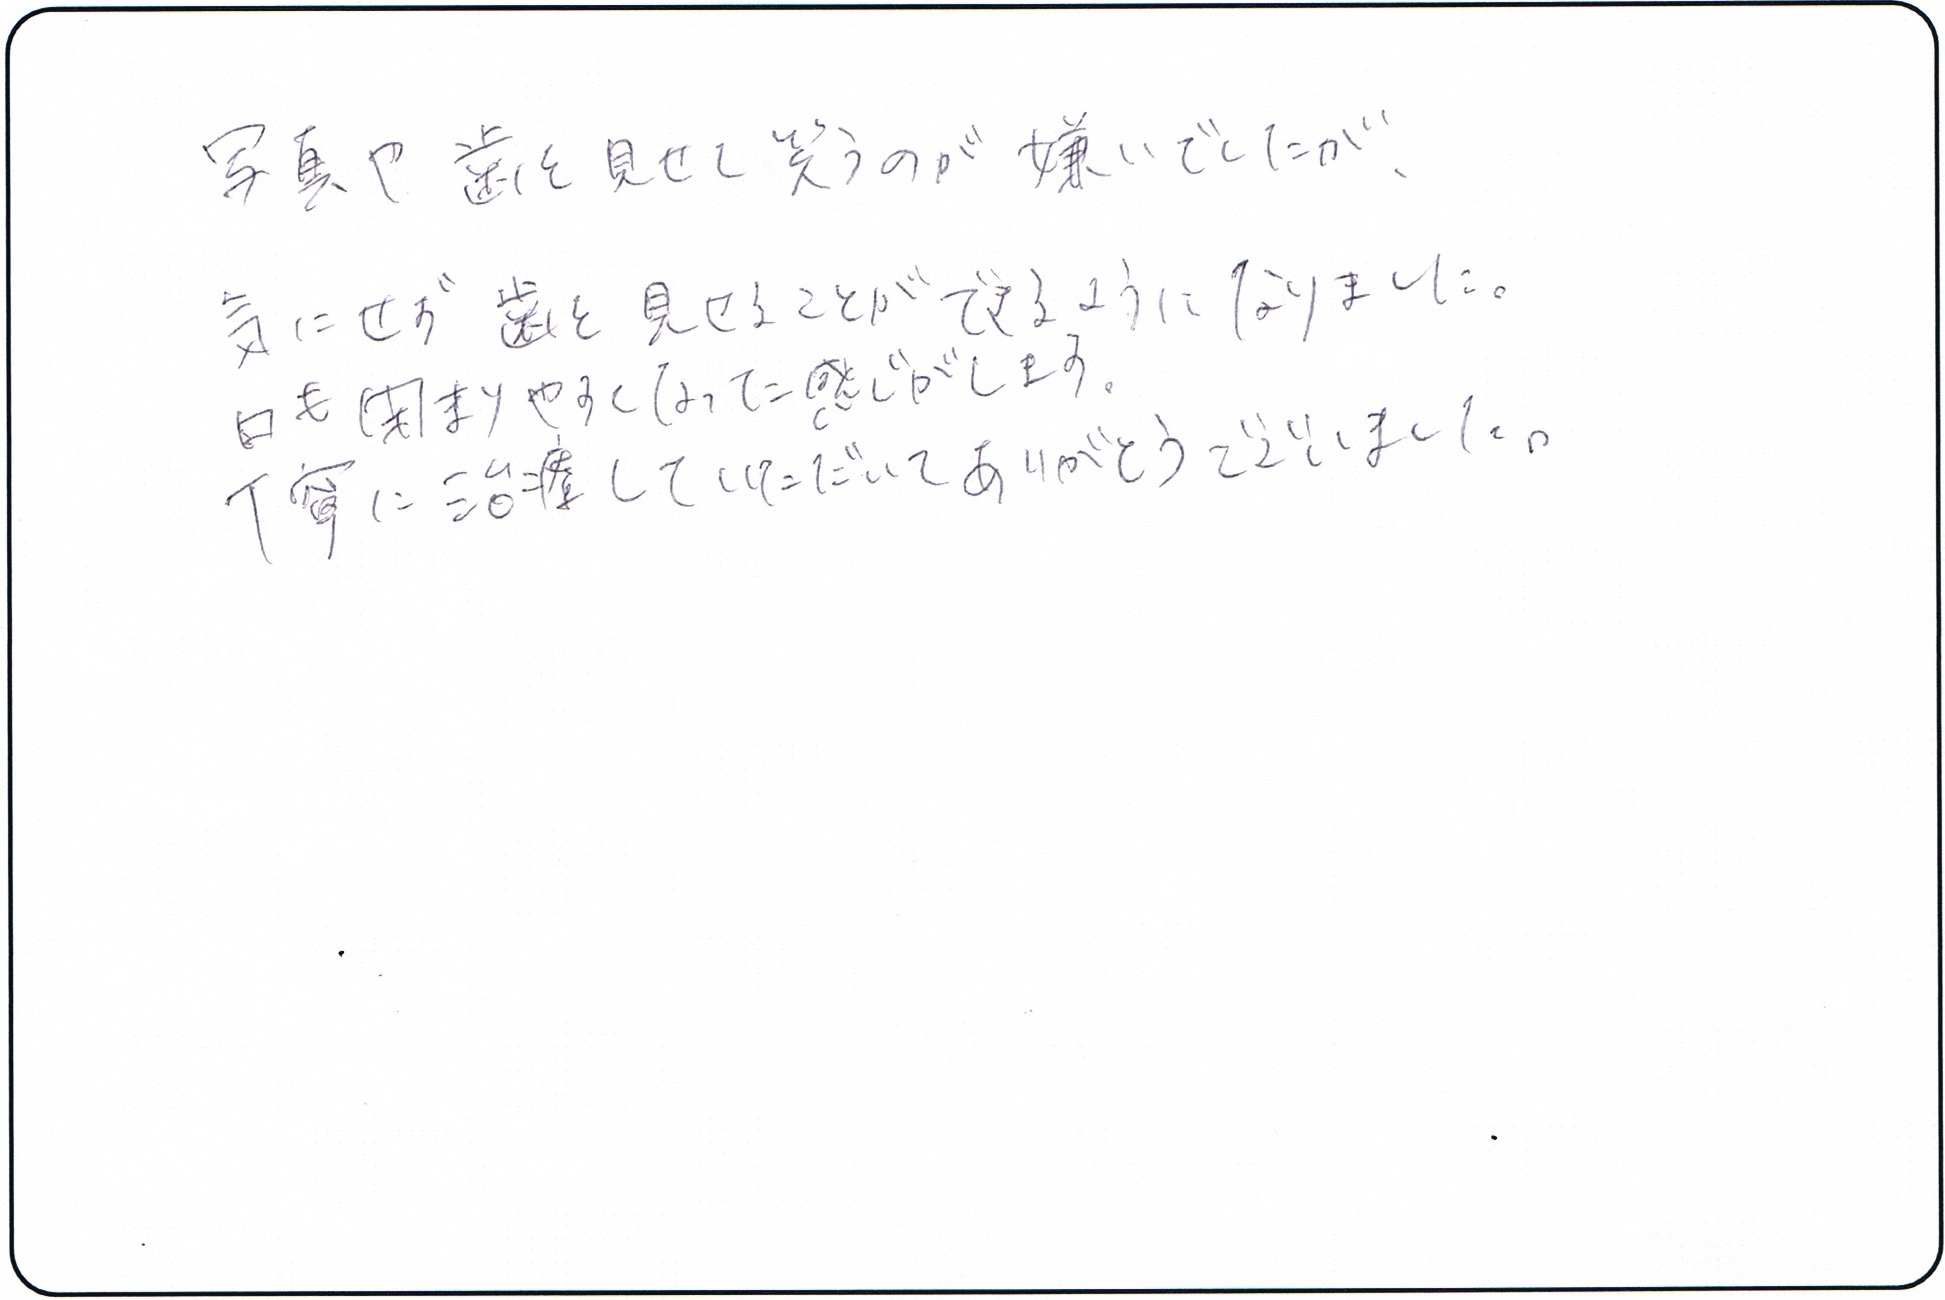 写真や歯を見せて笑うのが嫌いでしたが、
気にせず歯を見せることができるようになりました。
口も閉まりやすくなってた感じがします。
丁寧に治療していただいてありがとうございました。